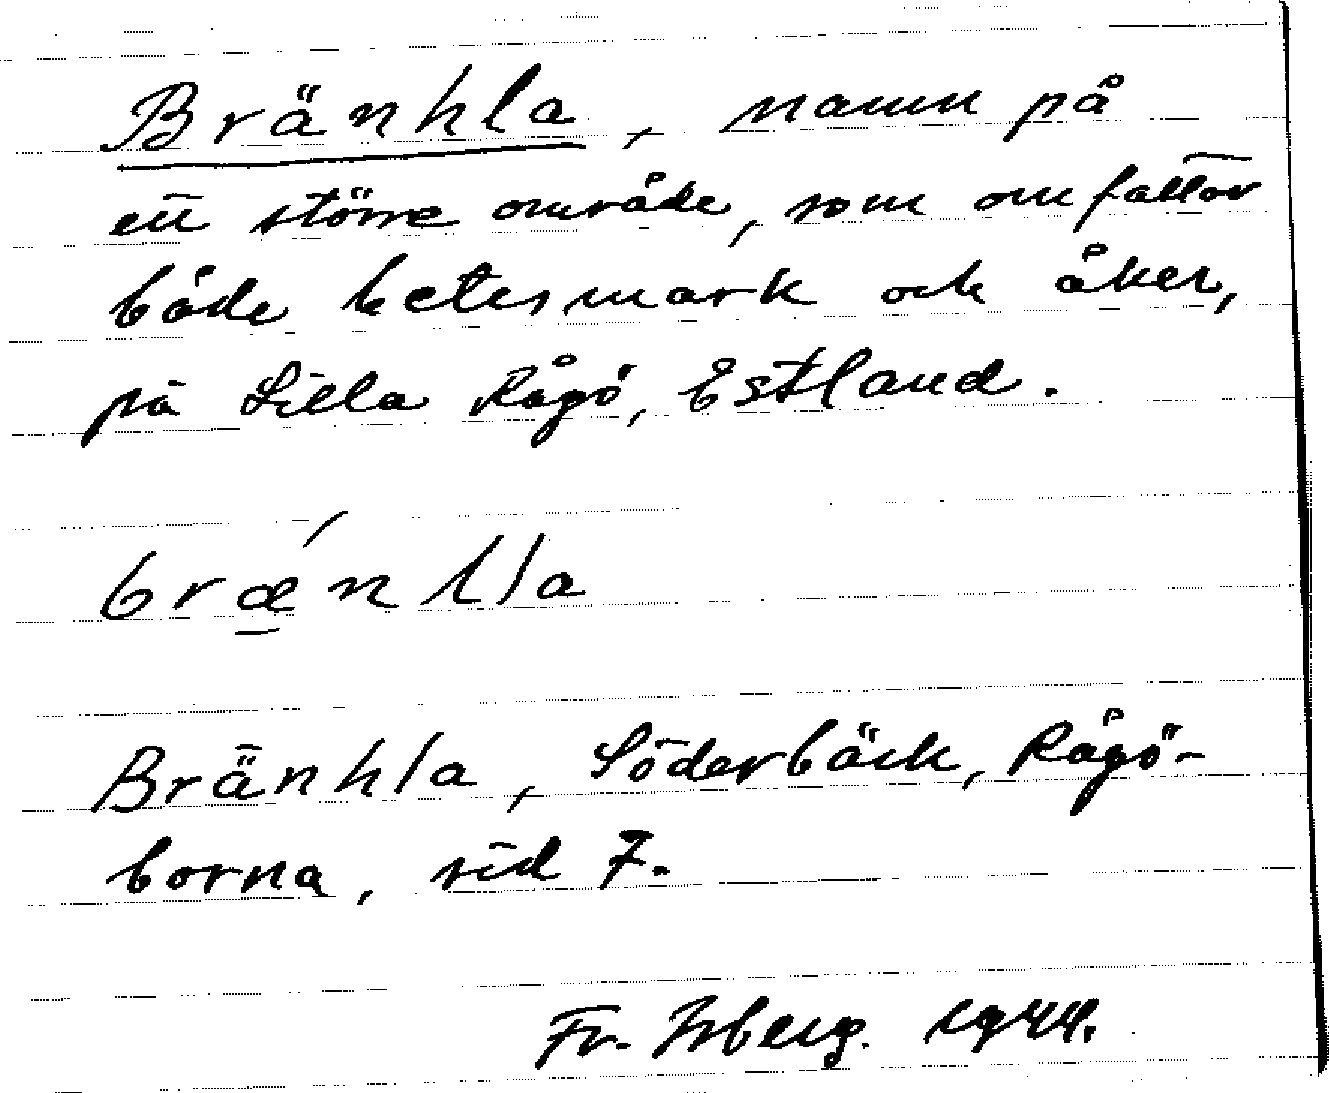 Bränhla, namn på
ett större område, som omfattar
både betesmark och åker,
på Lilla Rågö, Estland.
Bränhla, Söderbäck, Rågö-
borna, sid 7.
Fr. 1944.